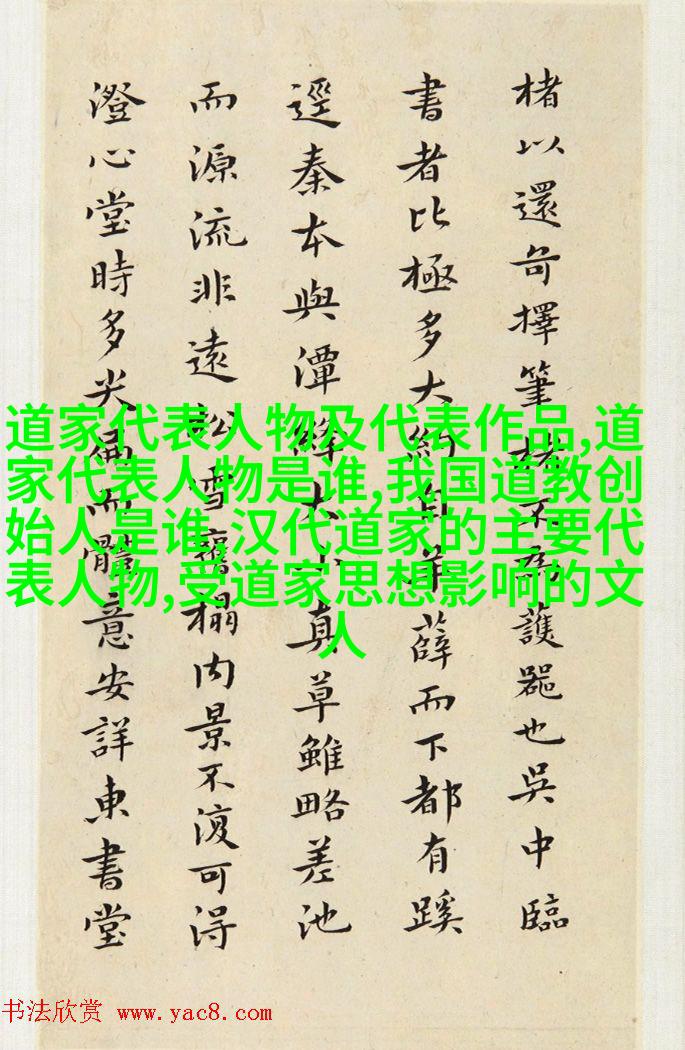 楮以還奇擇筆楮不為護器也吳中臨
書者比極多大約自羊薛而下都有蹊
逕秦本與潭絳大小真草雖略差池
而源流非遠松雪舊榻內景不復可得
澄心堂時多尖偏而體意安詳東書堂
道家代表人物及代表作品,道
家代表人物是谁,我国道教创
始人是谁,汉代道家的主要代
表人物,受道家思想影响的文
人
书法欣赏 www.yac8.com